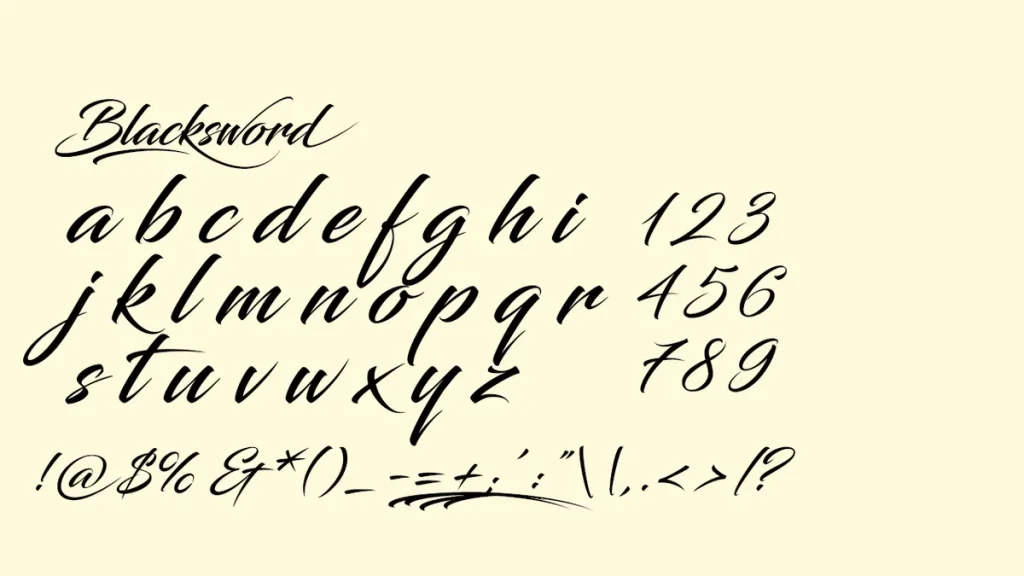 Blacksword
a b c d e f g h i 1 2 3
j k l m n o p q r 4 5 6
s t u v w x y z 7 8 9
! @ $ % & * ( ) _ - = + ; ' : " \ | , . < > / ?